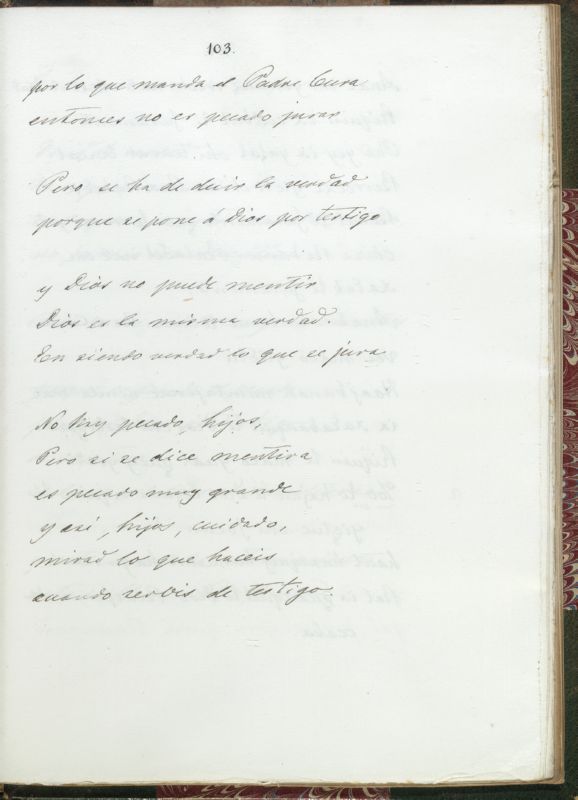 103.
por lo que manda el Padre Cura
entonces no es pecado jurar
Pero se ha de decir la verdad
porque se pone á Dios por testigo
y Dios no puede mentir
Dios es la misma verdad.
En siendo verdad lo que se jura
No hay pecado, hijos,
Pero si se dice mentira
es pecado muy grande
y asi, hijos, cuidado,
mirad lo que haceis
cuando servis de testigo.